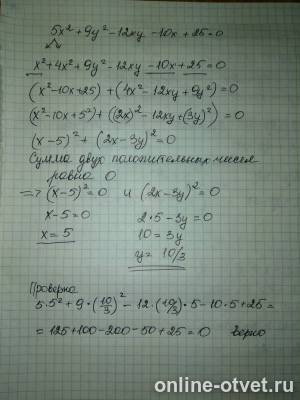 5x² + 9y² - 12xy - 10x + 25 = 0
x² + 4x² + 9y² - 12xy - 10x + 25 = 0
(x² - 10x + 25) + (4x² - 12xy + 9y²) = 0
(x² - 10x + 5²) + ((2x)² - 12xy + (3y)²) = 0
(x - 5)² + (2x - 3y)² = 0
Сумма двух положительных чисел
равна 0
=> (x - 5)² = 0 и (2x - 3y)² = 0
x - 5 = 0 2 · 5 - 3y = 0
x = 5 10 = 3y
y = 10/3
Проверка
5 · 5² + 9 · (10/3)² - 12 · (10/3) · 5 - 10 · 5 + 25 =
= 125 + 100 - 200 - 50 + 25 = 0 верно
online-otvet.ru